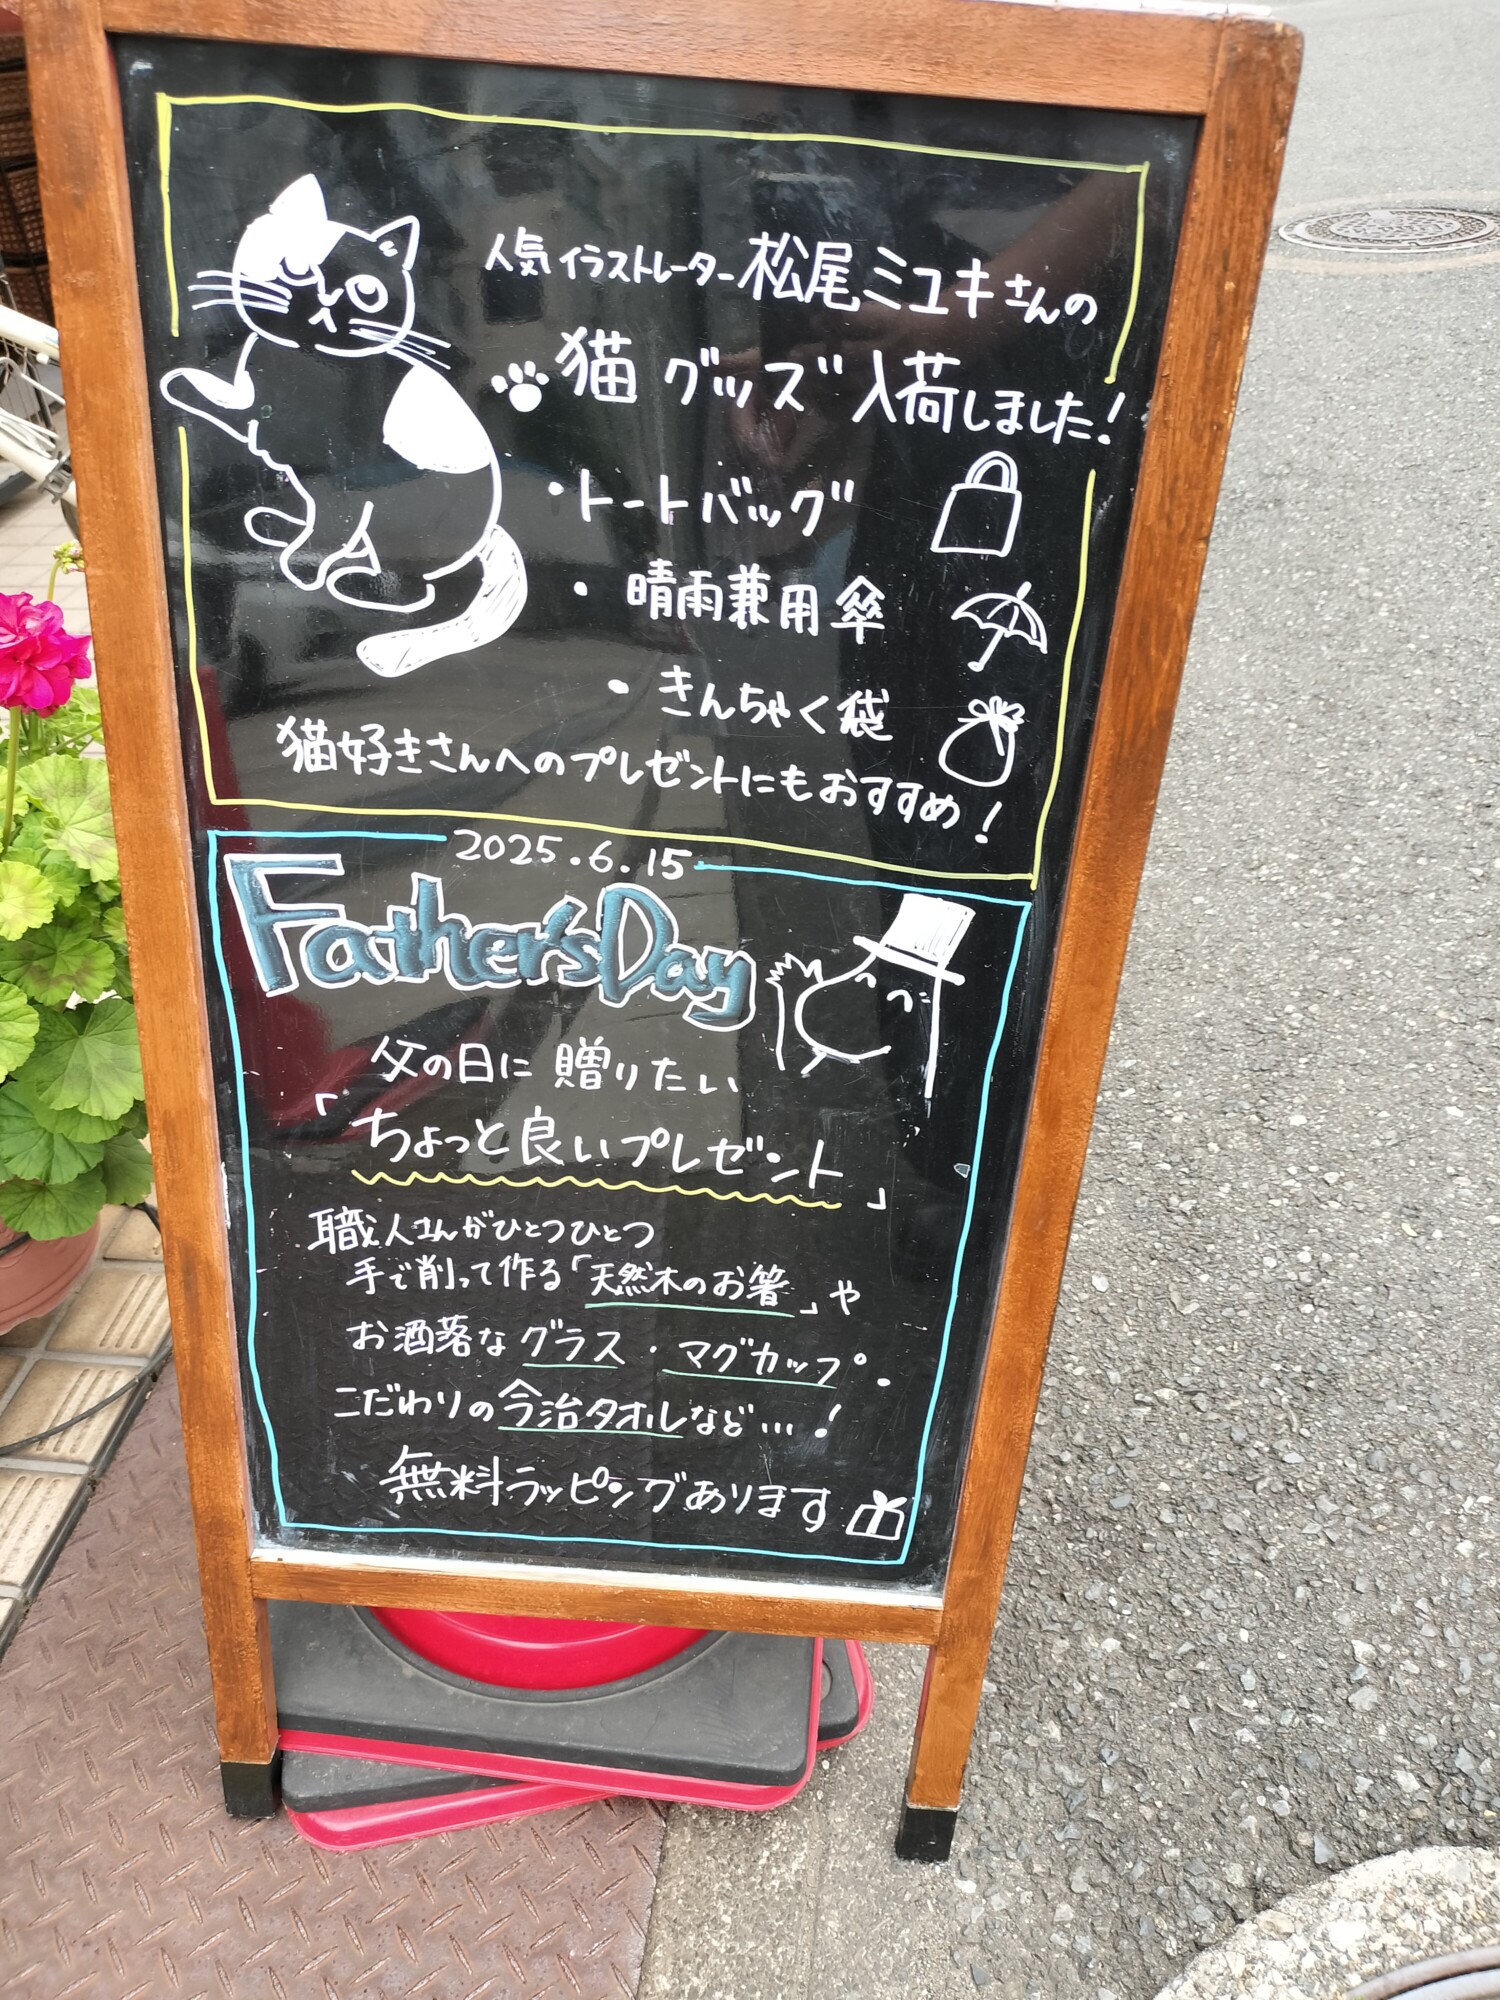 人気イラストレーター松尾ミユキさんの
猫グッズ入荷しました!
・トートバッグ
・晴雨兼用傘
・きんちゃく袋
猫好きさんへのプレゼントにもおすすめ!
2025.6.15
Father'sDay
父の日に贈りたい
「ちょっと良いプレゼント」
職人さんがひとつひとつ
手で削って作る「天然木のお箸」や
お洒落なグラス・マグカップ。
こだわりの今治タオルなど…!
無料ラッピングあります